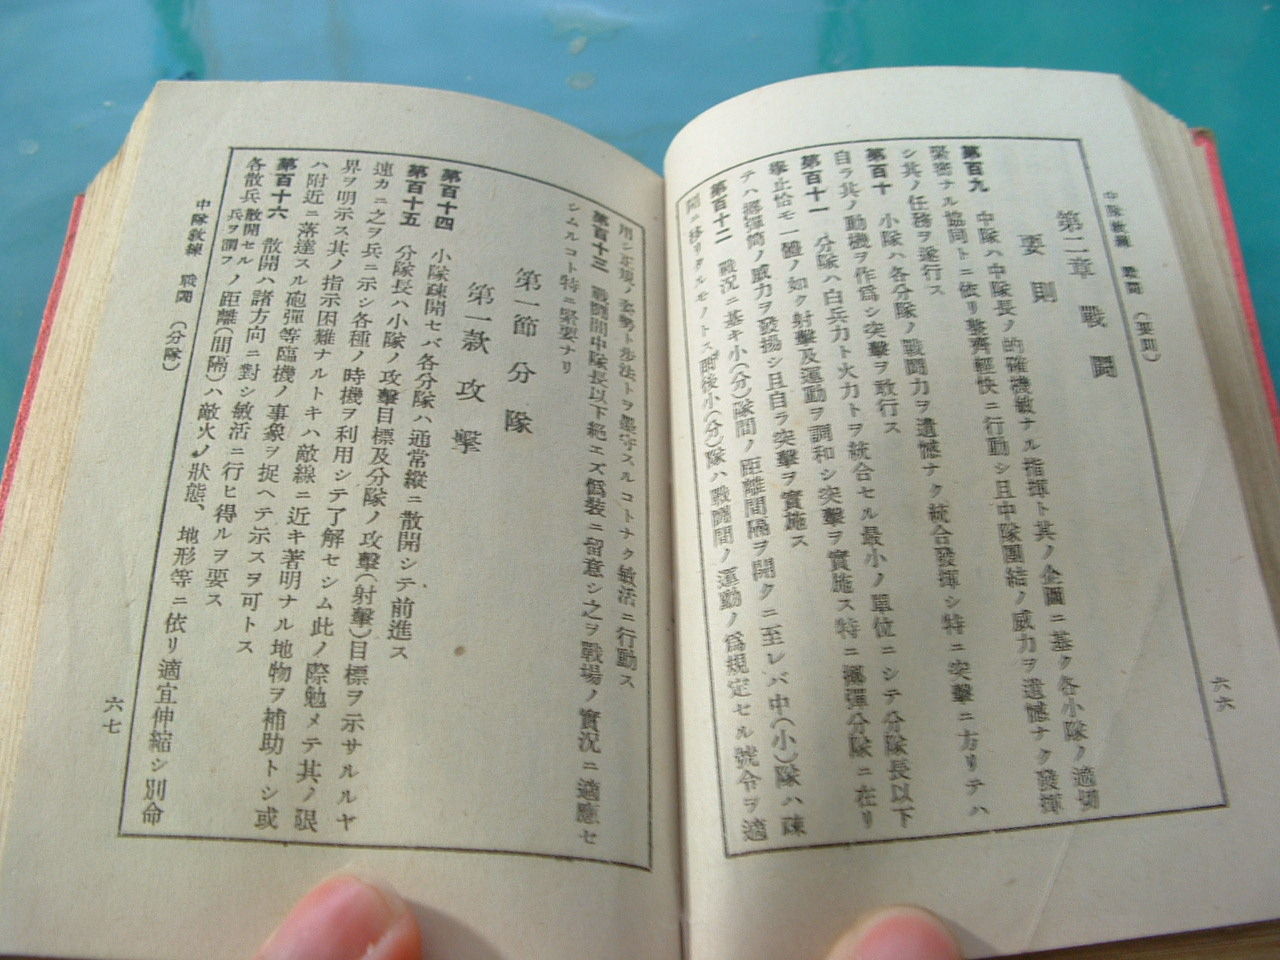 中隊敎練 戰鬪 (要則)
第二章 戰鬪
要則
第百九 中隊ハ中隊長ノ的確機敏ナル指揮ト其ノ企圖ニ基ク各小隊ノ適切
緊密ナル協同トニ依リ整齊輕快ニ行動シ且中隊團結ノ威力ヲ遺憾ナク發揮
シ其ノ任務ヲ遂行ス
第百十 小隊ハ各分隊ノ戰鬪力ヲ遺憾ナク統合發揮シ特ニ突擊ニ方リテハ
自ラ其ノ動機ヲ作爲シ突擊ヲ敢行ス
第百十一 分隊ハ白兵力ト火力トヲ統合セル最小ノ單位ニシテ分隊長以下
擧止恰モ一體ノ如ク射擊及運動ヲ調和シ突擊ヲ實施ス特ニ擲彈分隊ニ在リ
テハ擲彈筒ノ威力ヲ發揚シ且自ラ突擊ヲ實施ス
第百十二 戰況ニ基キ小(分)隊間ノ距離間隔ヲ開クニ至レバ中(小)隊ハ疎
開ニ移リタルモノトス爾後小(分)隊ハ戰鬪間ノ運動ノ爲規定セル號令ヲ適
六六
用シ正規ノ姿勢ト步法トヲ墨守スルコトナク敏活ニ行動ス
第百十三 戰鬪間中隊長以下絕エズ僞裝ニ留意シ之ヲ戰場ノ實況ニ適應セ
シムルコト特ニ緊要ナリ
第一節 分隊
第一款 攻擊
第百十四 小隊疎開セバ各分隊ハ通常縱ニ散開シテ前進ス
第百十五 分隊長ハ小隊ノ攻擊目標及分隊ノ攻擊(射擊)目標ヲ示サルルヤ
速カニ之ヲ兵ニ示シ各種ノ時機ヲ利用シテ了解セシム此ノ際勉メテ其ノ限
界ヲ明示ス其ノ指示困難ナルトキハ敵線ニ近キ著明ナル地物ヲ補助トシ或
ハ附近ニ落達スル砲彈等臨機ノ事象ヲ捉ヘテ示スヲ可トス
第百十六 散開ハ諸方向ニ對シ敏活ニ行ヒ得ルヲ要ス
各散兵 散開セル兵ヲ謂フ ノ距離(間隔)ハ敵火ノ狀態、地形等ニ依リ適宜伸縮シ別命
中隊敎練 戰鬪 (分隊)
六七